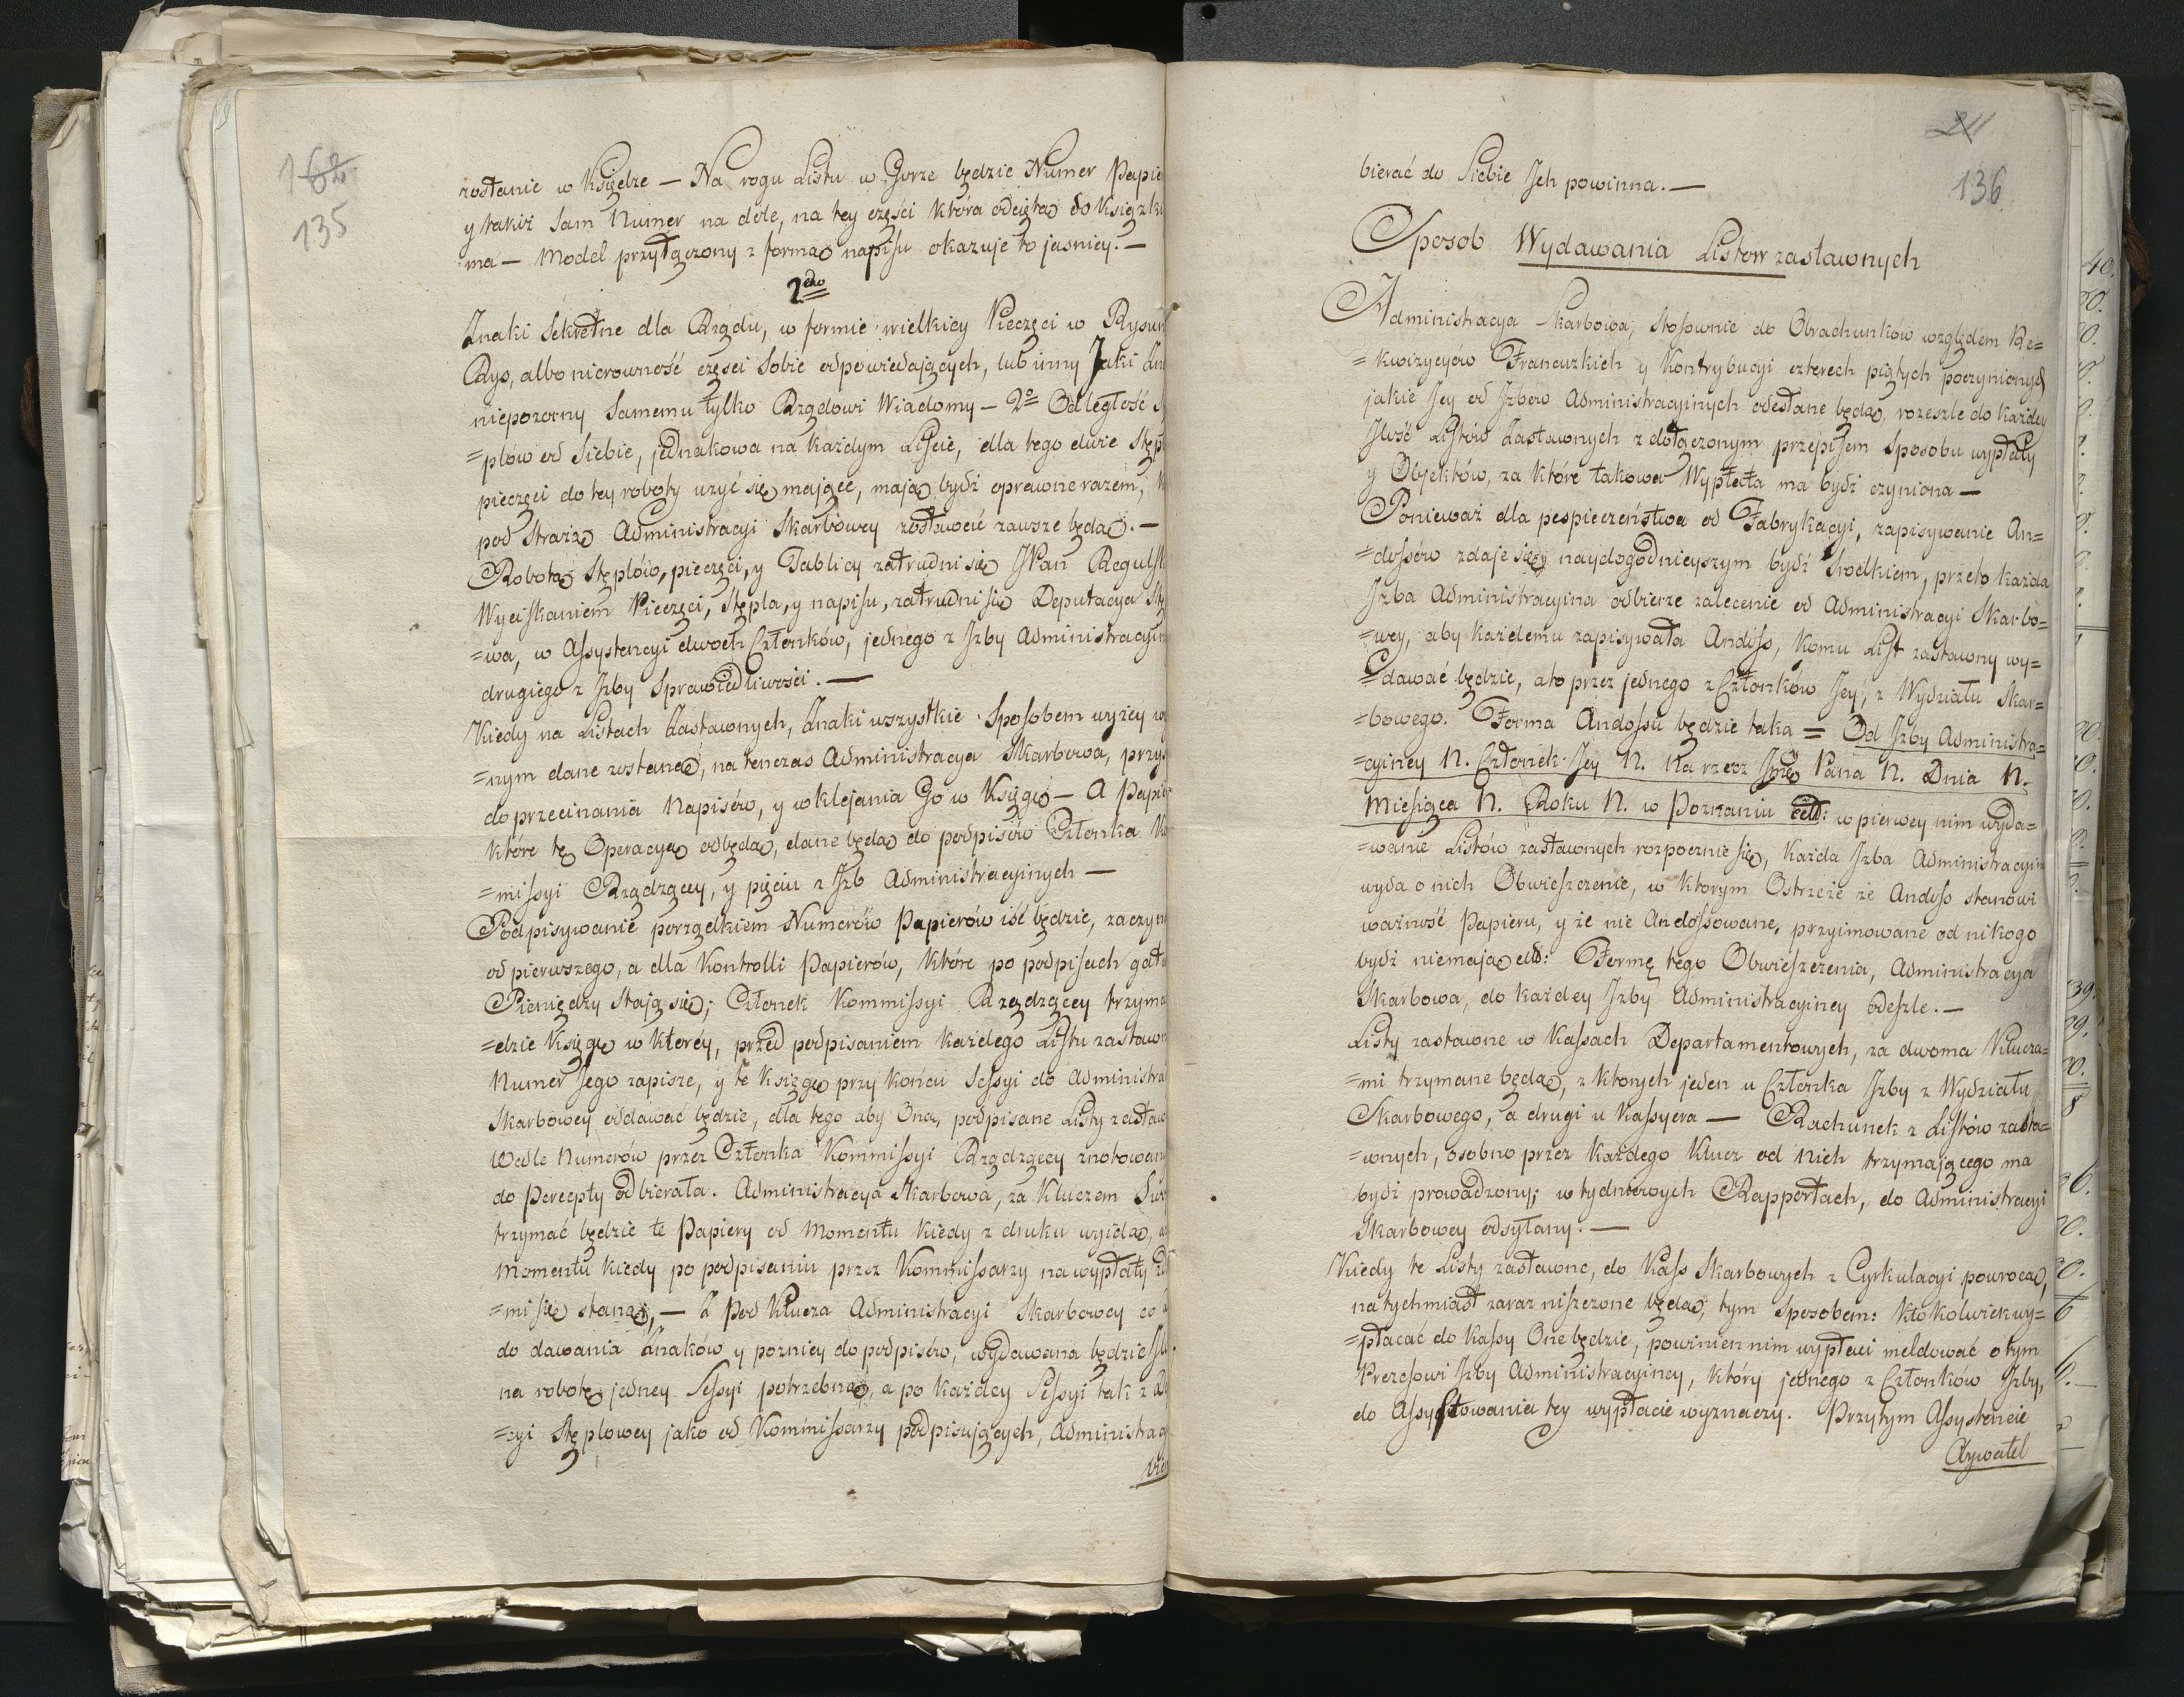 162
135
zostanie w Księdze — Na rogu Listu w Gorze będzie Numer Papie
y takiż sam Numer na dole, na tey części która odcięta do Księżki
ma — Model przyłączony z formą napisu okazuje to jasniey. —
2do
Znaki sekretne dla Rządu, w formie wielkiey Pieczęci w Rysun
Rys, albo nierowność części sobie odpowiedających, lub inny Jaki Zn
niepozorny samemu tylko Rządowi Wiadomy — 2o Odległość S
=plow od Siebie, jednakowa na każdym Liście, dla tego dwie Stęp
pieczęci do tey roboty użyć się mające, maią bydź oprawne razem,
pod Strażą Administracyi Skarbowey zostawać zawsze będą. —
Robotą Stęplów, pieczęci, y Tablicy zatrudni się JPan Regulsk
Wyciskaniem Pieczęci, Stępla, y napisu, zatrudni się Deputacya Stę
=wa, w Assystencyi dwóch Członków, jednego z Izby Administracyin
drugiego z Izby Sprawiedliwości. —
Kiedy na Listach Zastawnych, Znaki wszystkie Sposobem wyżey w
=nym dane zostaną, na tenczas Administracya Skarbowa, przy
do przecinania Napisów, y wklejania Go w Księgę — A Papie
które tę Operacyą odbędą, dane będą do podpisów Członka Ko
=missyi Rządzącey, y pięciu z Izb Administracyinych —
Podpisywanie porządkiem Numerów Papierów iść będzie, zaczyn
od pierwszego, a dla Kontrolli Papierów, które po podpisach gato
Pieniędzy stają się; Członek Kommissyi Rządzącey trzyma
=dzie Księgę w którey, przed podpisaniem każdego Listu zastawn
Numer Jego zapisze, y te Księgę przy końcu Sessyi do Administra
Skarbowey oddawać będzie, dla tego aby Ona, podpisane Listy zastaw
Wedle Numerów przez Członka Kommissyi Rządzącey znotowan
do Percepty odbierała. Administracya Skarbowa, za Kluczem Sw
trzymać będzie te Papiery od Momentu kiedy z druku wyidą, a
Momentu kiedy po podpisaniu przez Kommissarzy na wypłaty zd
=mi się staną, — Z pod Klucza Administracyi Skarbowey co
do dawania Znaków y pozniey do podpisów, wydawana będzie Jl
na robotę jedney Sessyi potrzebną, a po każdey Sessyi tak z De
=cyi Stęplowey jako od Kommissarzy podpisujących, Administrac
211
136
bierać do Siebie Jch powinna. —
Sposob Wydawania Listow zastawnych
Administracya Skarbowa, stosownie do Obrachunków względem Re=
=kwizycyów Francuzkich y Kontrybucyi czterech piątych poczynionych
jakie Jey od Jzbów Administracyinych odesłane będą, rozeszle do każdey
Jlość Listów Zastawnych z dołączonym przepisem Sposobu wypłaty
y Objektów, za które takowa Wypłata ma bydź czyniona —
Ponieważ dla pespieczeństwa od Fabrykacyi, zapisywanie An=
=dossów zdaje się naydogodnieyszym bydź środkiem, przeto każda
Jzba Administracyina odbierze zalecenie od Administracyi Skarbo=
=wey, aby każdemu zapisywała Andoss, komu List zastawny wy=
=dawać będzie, a to przez jednego z Członków Jey, z Wydziału Skar=
=bowego. Forma Andossu będzie taka = Od Jzby Administra=
=cyiney N. Członek Jey N. Na rzecz Jmę Pana N. Dnia N.
Miesiąca N. Roku N. w Poznaniu etc: w pierwey nim wyda=
=wanie Listów zastawnych rozpocznie się, każda Jzba Administracyin
wyda o nich Obwieszczenie, w ktorym Ostrzeże że Andoss stanowi
ważność Papieru, y że nie Andossowane, przyimowane od nikogo
bydź niemaią etc: Formę tego Obwieszczenia, Administracya
Skarbowa, do każdey Jzby Administracyiney odeszle. —
Listy zastawne w Kassach Departamentowych, za dwoma Klucza=
=mi trzymane będą, z ktorych jeden u Członka Jzby z Wydziału
Skarbowego, a drugi u Kassyera — Rachunek z Listów zasta=
=wnych, osobno przez każdego Klucz od nich trzymającego ma
bydź prowadzony; w tydniowych Rapportach, do Administracyi
Skarbowey odsyłany. —
Kiedy te Listy zastawne, do Kass Skarbowych z Cyrkulacyi powrocą,
natychmiast zaraz niszczone będą, tym sposobem: ktokolwiek wy=
=płacać do Kassy One będzie, powinien nim wypłaci meldować o tym
Prezesowi Jzby Administracyiney, który jednego z Członków Jzby,
do Assystowania tey wypłacie wyznaczy. Przytym Assystencie
Oywatel